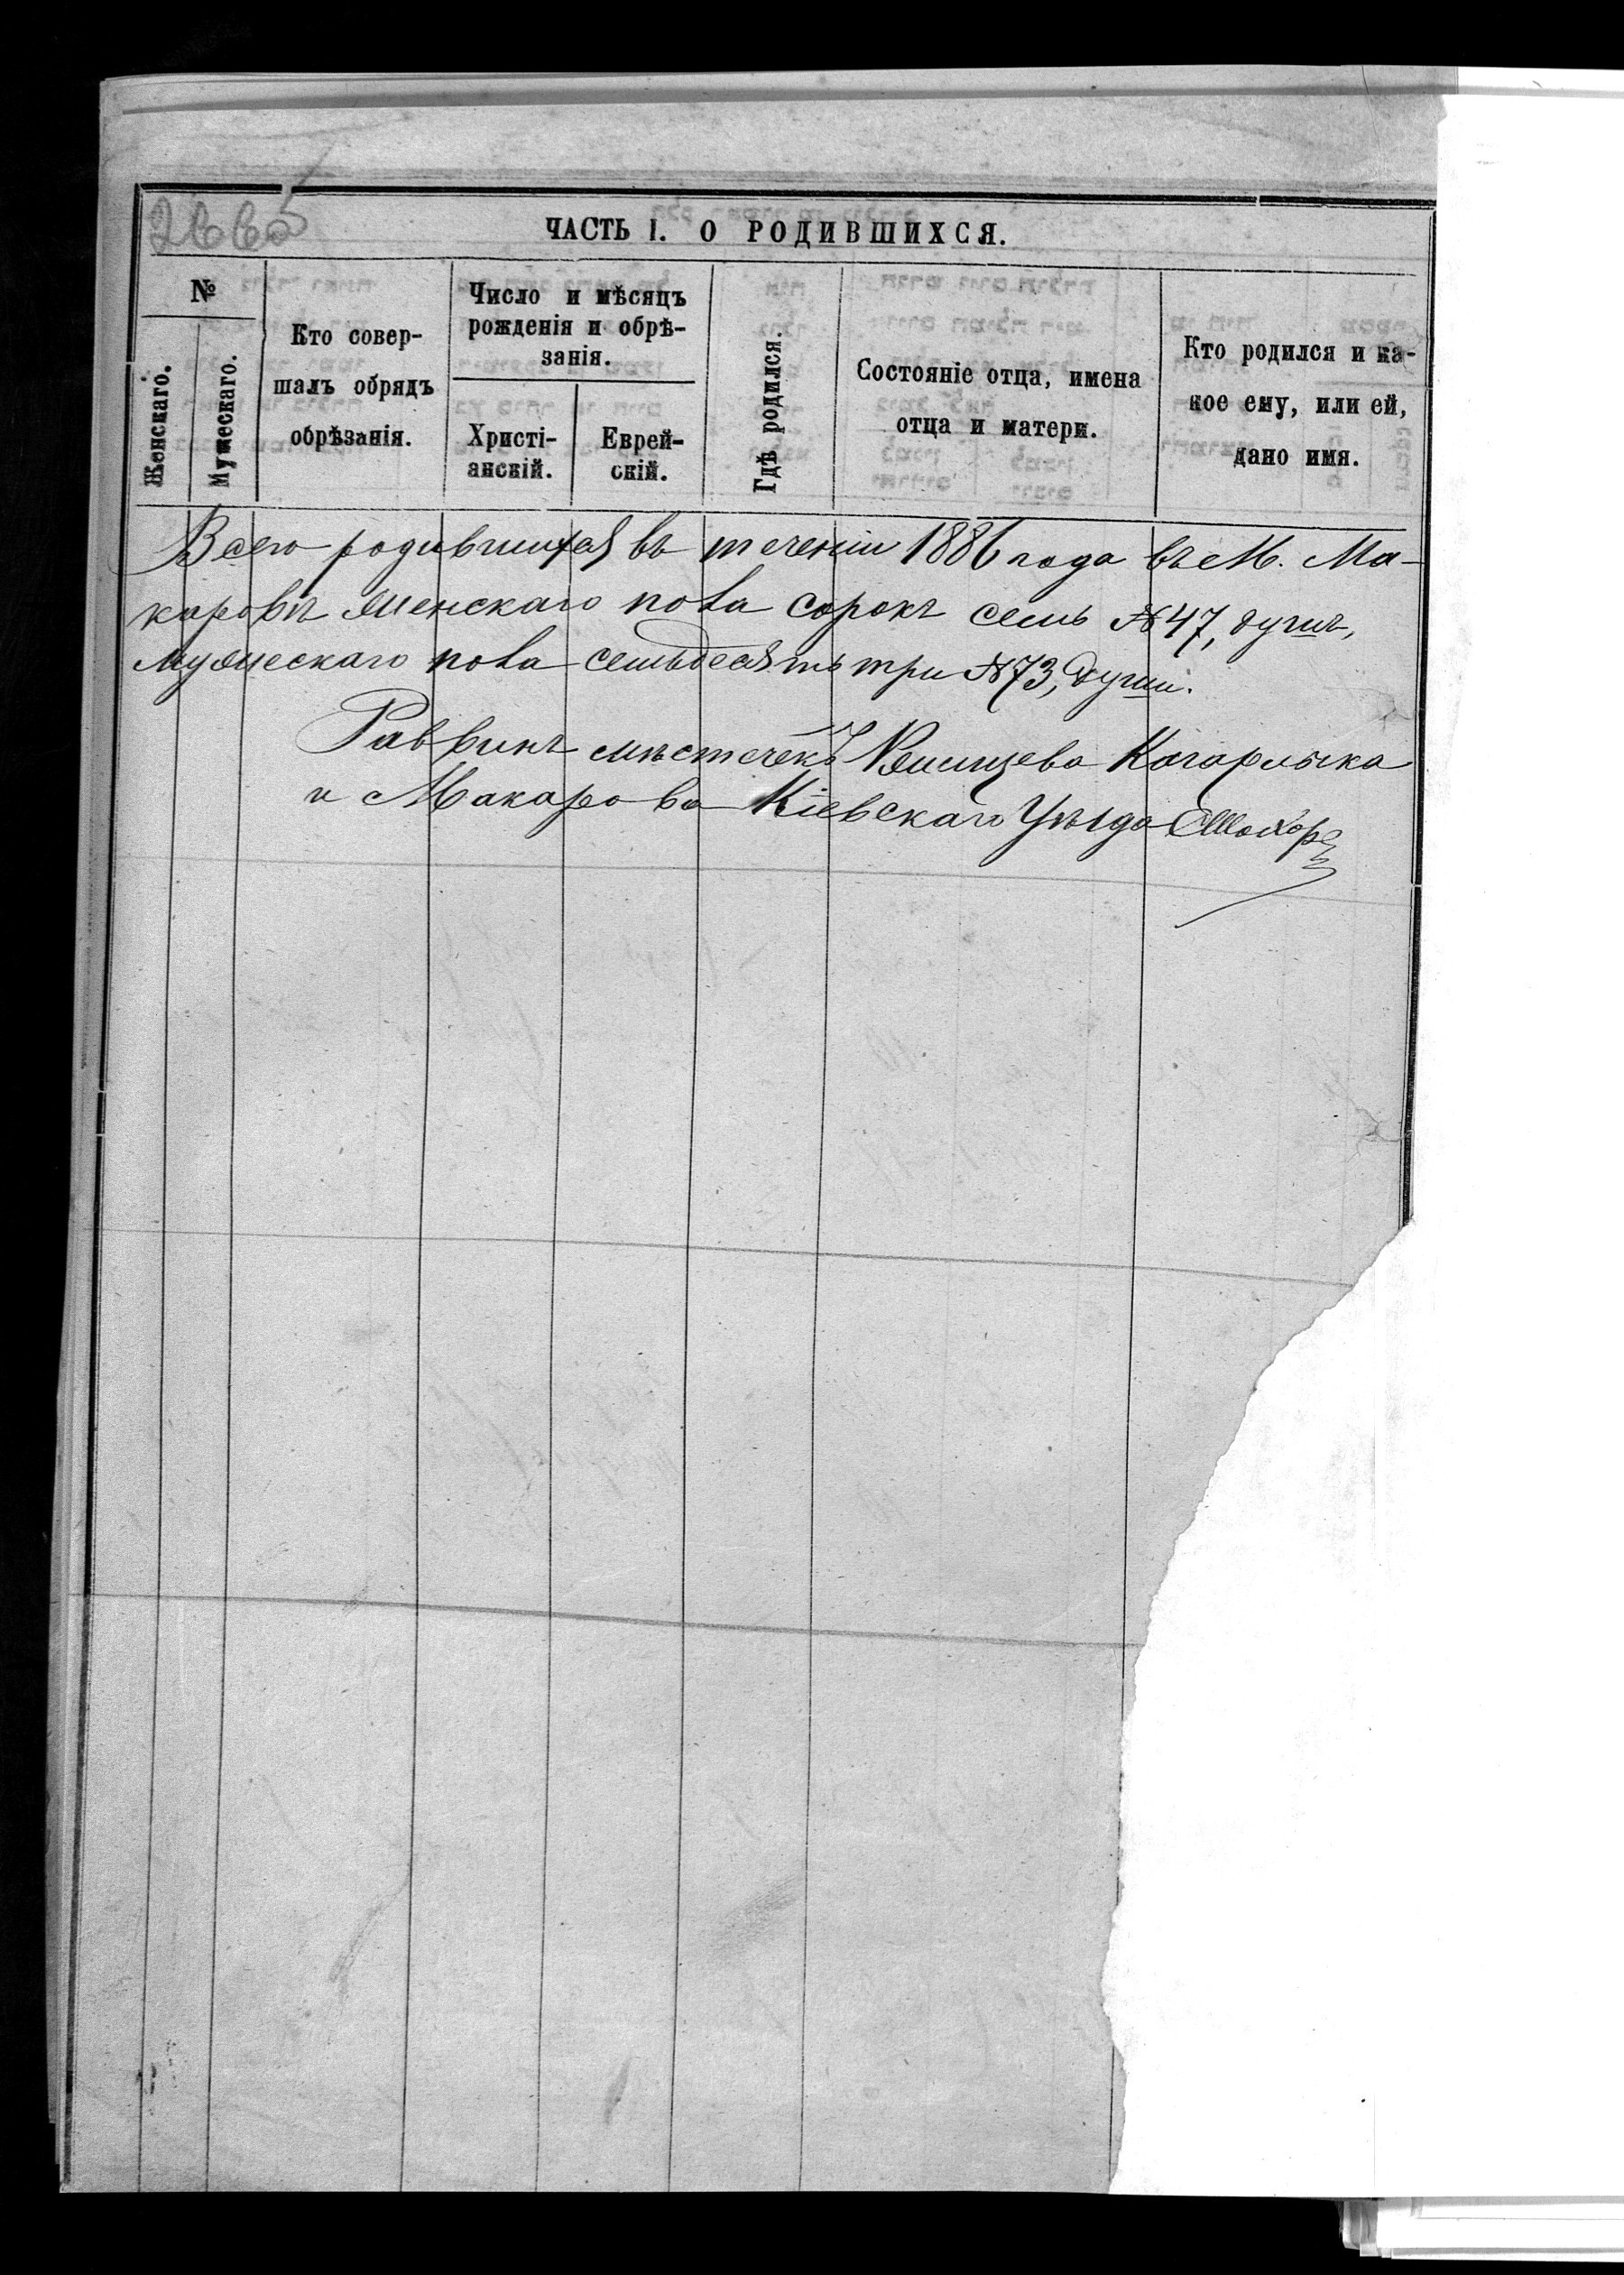 ЧАСТЬ I. О РОДИВШИХСЯ.
№
Женскаго.
Мужескаго.
Кто совер-
шалъ обрядъ
обрѣзанія.
Число и мѣсяцъ
рожденія и обрѣ-
занія.
Христі-
анскій.
Еврей-
скій.
Гдѣ родился.
Состояніе отца, имена
отца и матери.
Кто родился и ка-
кое ему, или ей,
дано имя.
Всего родившихся въ теченіи 1886 года въ М. Ма-
каровѣ женскаго пола сорокъ семь № 47, душъ,
мужескаго пола семьдесятъ три № 73, души.
Раввинъ мѣстечекъ Ржищева Кагарлыка
и Макарова Кіевскаго Уѣзда